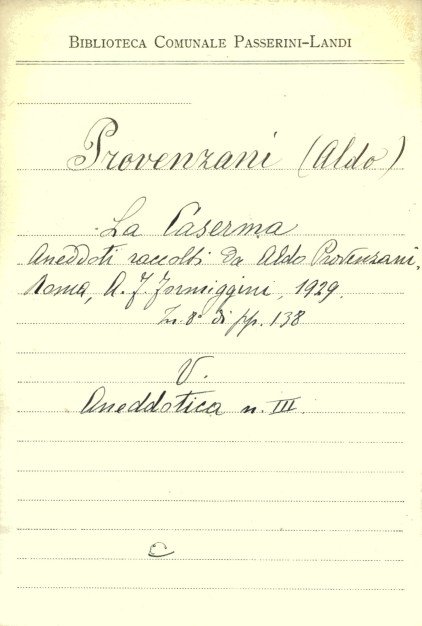 Biblioteca Comunale Passerini-Landi
Provenzani (Aldo)
La Caserma
Aneddoti raccolti da Aldo Provenzani.
Roma, A. F. Formiggini, 1929.
In 8° di pp. 138
V.
Aneddotica n. III.
C